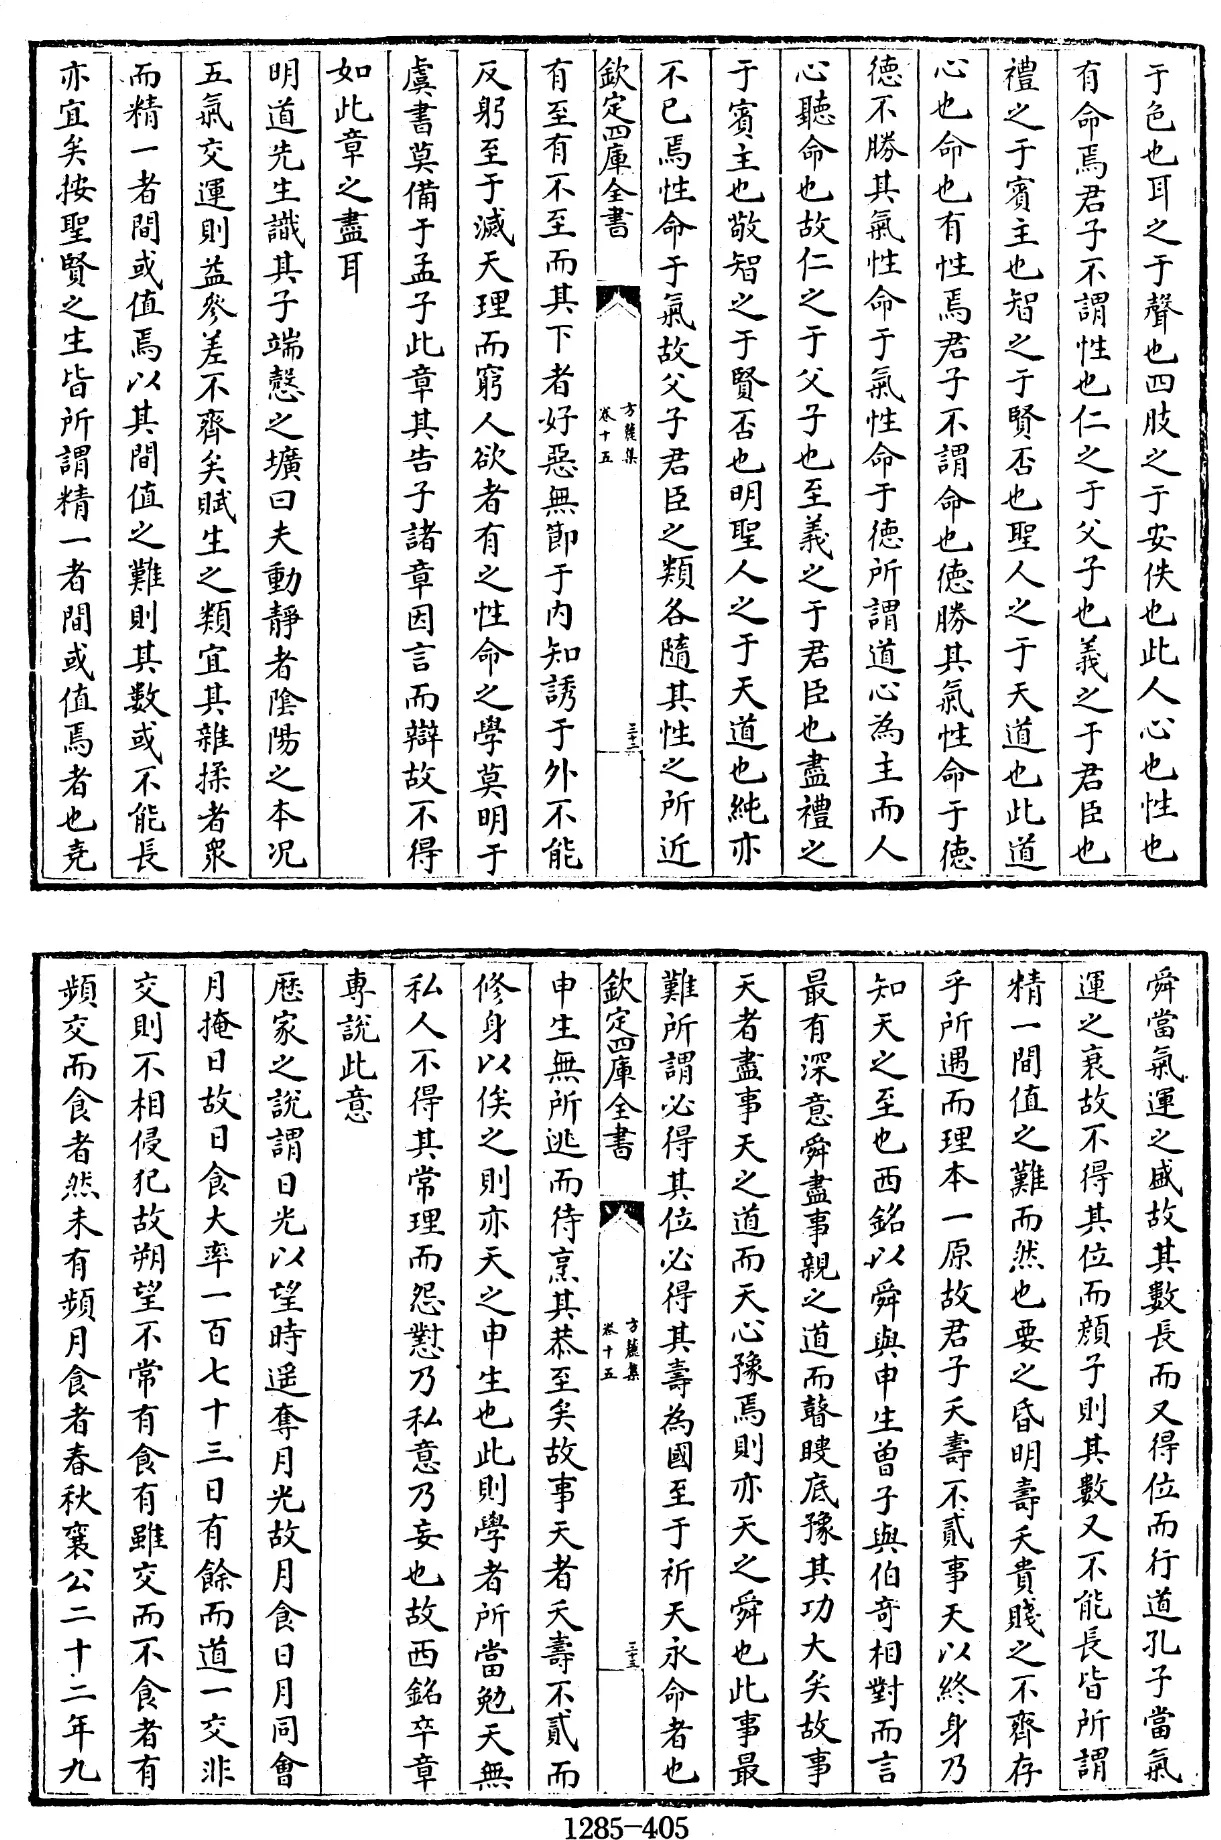 于色也耳之于聲也四肢之于安佚也此人心也性也
有命焉君子不謂性也仁之于父子也義之于君臣也
禮之于賓主也智之于賢否也聖人之于天道也此道
心也命也有性焉君子不謂命也德勝其氣性命于德
德不勝其氣性命于氣性命于德所謂道心為主而人
心聽命也故仁之于父子也至義之于君臣也盡禮之
于賓主也敬智之于賢否也明聖人之于天道也純亦
不已焉性命于氣故父子君臣之類各隨其性之所近
欽定四庫全書
方麓集
卷十五
三十二
有至有不至而其下者好惡無節于内知誘于外不能
反躬至于滅天理而窮人欲者有之性命之學莫明于
虞書莫備于孟子此章其告子諸章因言而辯故不得
如此章之盡耳
明道先生識其子端慤之壙曰夫動靜者陰陽之本况
五氣交運則益參差不齊矣賦生之類宜其雜揉者衆
而精一者間或值焉以其間值之難則其數或不能長
亦宜矣按聖賢之生皆所謂精一者間或值焉者也堯
舜當氣運之盛故其數長而又得位而行道孔子當氣
運之衰故不得其位而顔子則其數又不能長皆所謂
精一間值之難而然也要之昏明壽夭貴賤之不齊存
乎所遇而理本一原故君子夭壽不貳事天以終身乃
知天之至也西銘以舜與申生曽子與伯奇相對而言
最有深意舜盡事親之道而瞽瞍底豫其功大矣故事
天者盡事天之道而天心豫焉則亦天之舜也此事最
難所謂必得其位必得其壽為國至于祈天永命者也
欽定四庫全書
方麓集
卷十五
三十三
申生無所逃而待烹其恭至矣故事天者夭壽不貳而
修身以俟之則亦天之申生也此則學者所當勉天無
私人不得其常理而怨懟乃私意乃妄也故西銘卒章
專說此意
歴家之說謂日光以望時遥奪月光故月食日月同會
月掩日故日食大率一百七十三日有餘而道一交非
交則不相侵犯故朔望不常有食有雖交而不食者有
頻交而食者然未有頻月食者春秋襄公二十二年九
1285-405